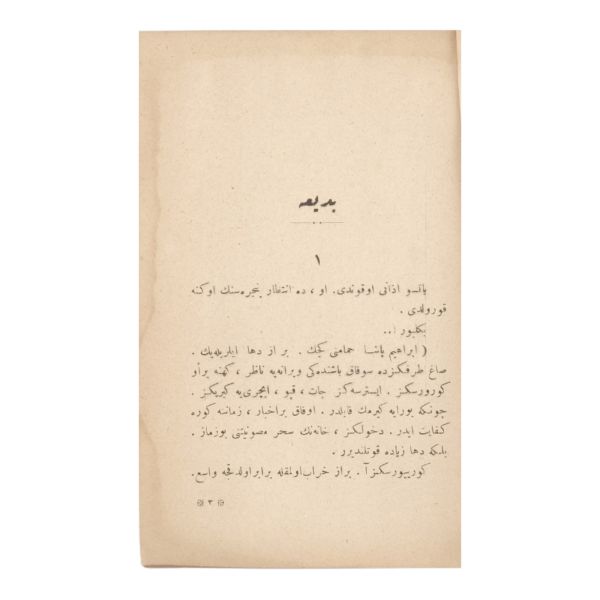 بديعه
١
ياتسو اذانى اوقوندى. او ، ده انتظار پنجره‌سنك اوكنه
قورولدى .
بكليور !..
( ابراهيم پاشا حمامنى كچك . بر از دها ايلريله‌يك .
صاغ طرفكزده سوقاق باشنده‌كى ويرانه‌يه ناظر ، كهنه براو
كورورسكز . ايسترسه‌كز جات ، قپو ، ايچرى‌يه كيريكز .
چونكه بورايه كيرمك قابلدر . اوفاق براخبار ، زمانسه كوره
كفايت ايدر . دخولكز ، خانه‌نك سحر مصونيتنى بوزماز .
بلكه دها زياده قوتلنديرر .
كورييورسكز آ . براز خراب اولمقله برابر اولدقجه واسع .
٣